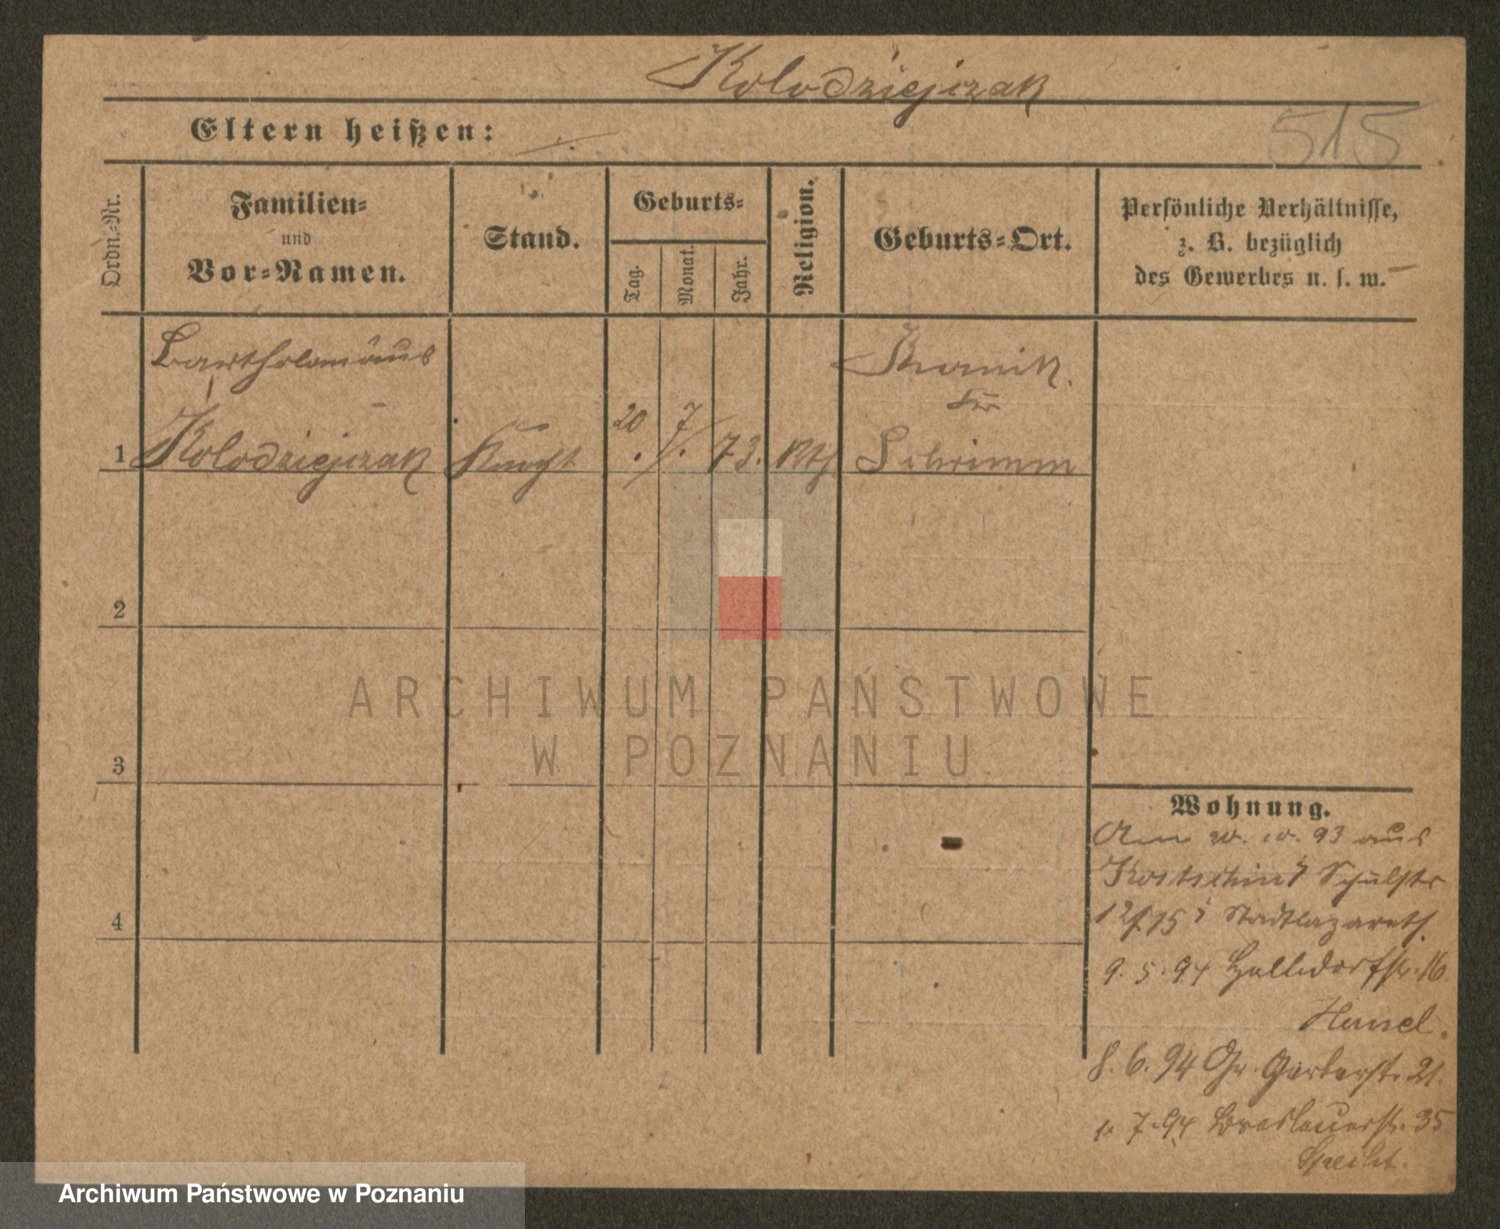 Kolodziejczak
Eltern heißen: ./.
515
Ordn.-Nr.
Familien-
und
Vor-Namen.
Stand.
Geburts-
Tag.
Monat.
Jahr.
Religion.
Geburts-Ort.
Persönliche Verhältnisse,
z. B. bezüglich
des Gewerbes u. s. w.
Bartholomäus
1 Kolodziejczak Knecht 20. 7. 73. Kth
Kr
Schrimm
2
3
4
Wohnung.
Am 20. 10. 93 aus
Kostschin Schulstr
12/ 75 Stadtlazareth.
9. 5. 94 16
Hensel.
8. 6. 94 Gr. Gerberstr. 21.
1. 7. 94 Breslauerstr. 35
Specht.
ARCHIWUM PAŃSTWOWE
W POZNANIU
Archiwum Państwowe w Poznaniu